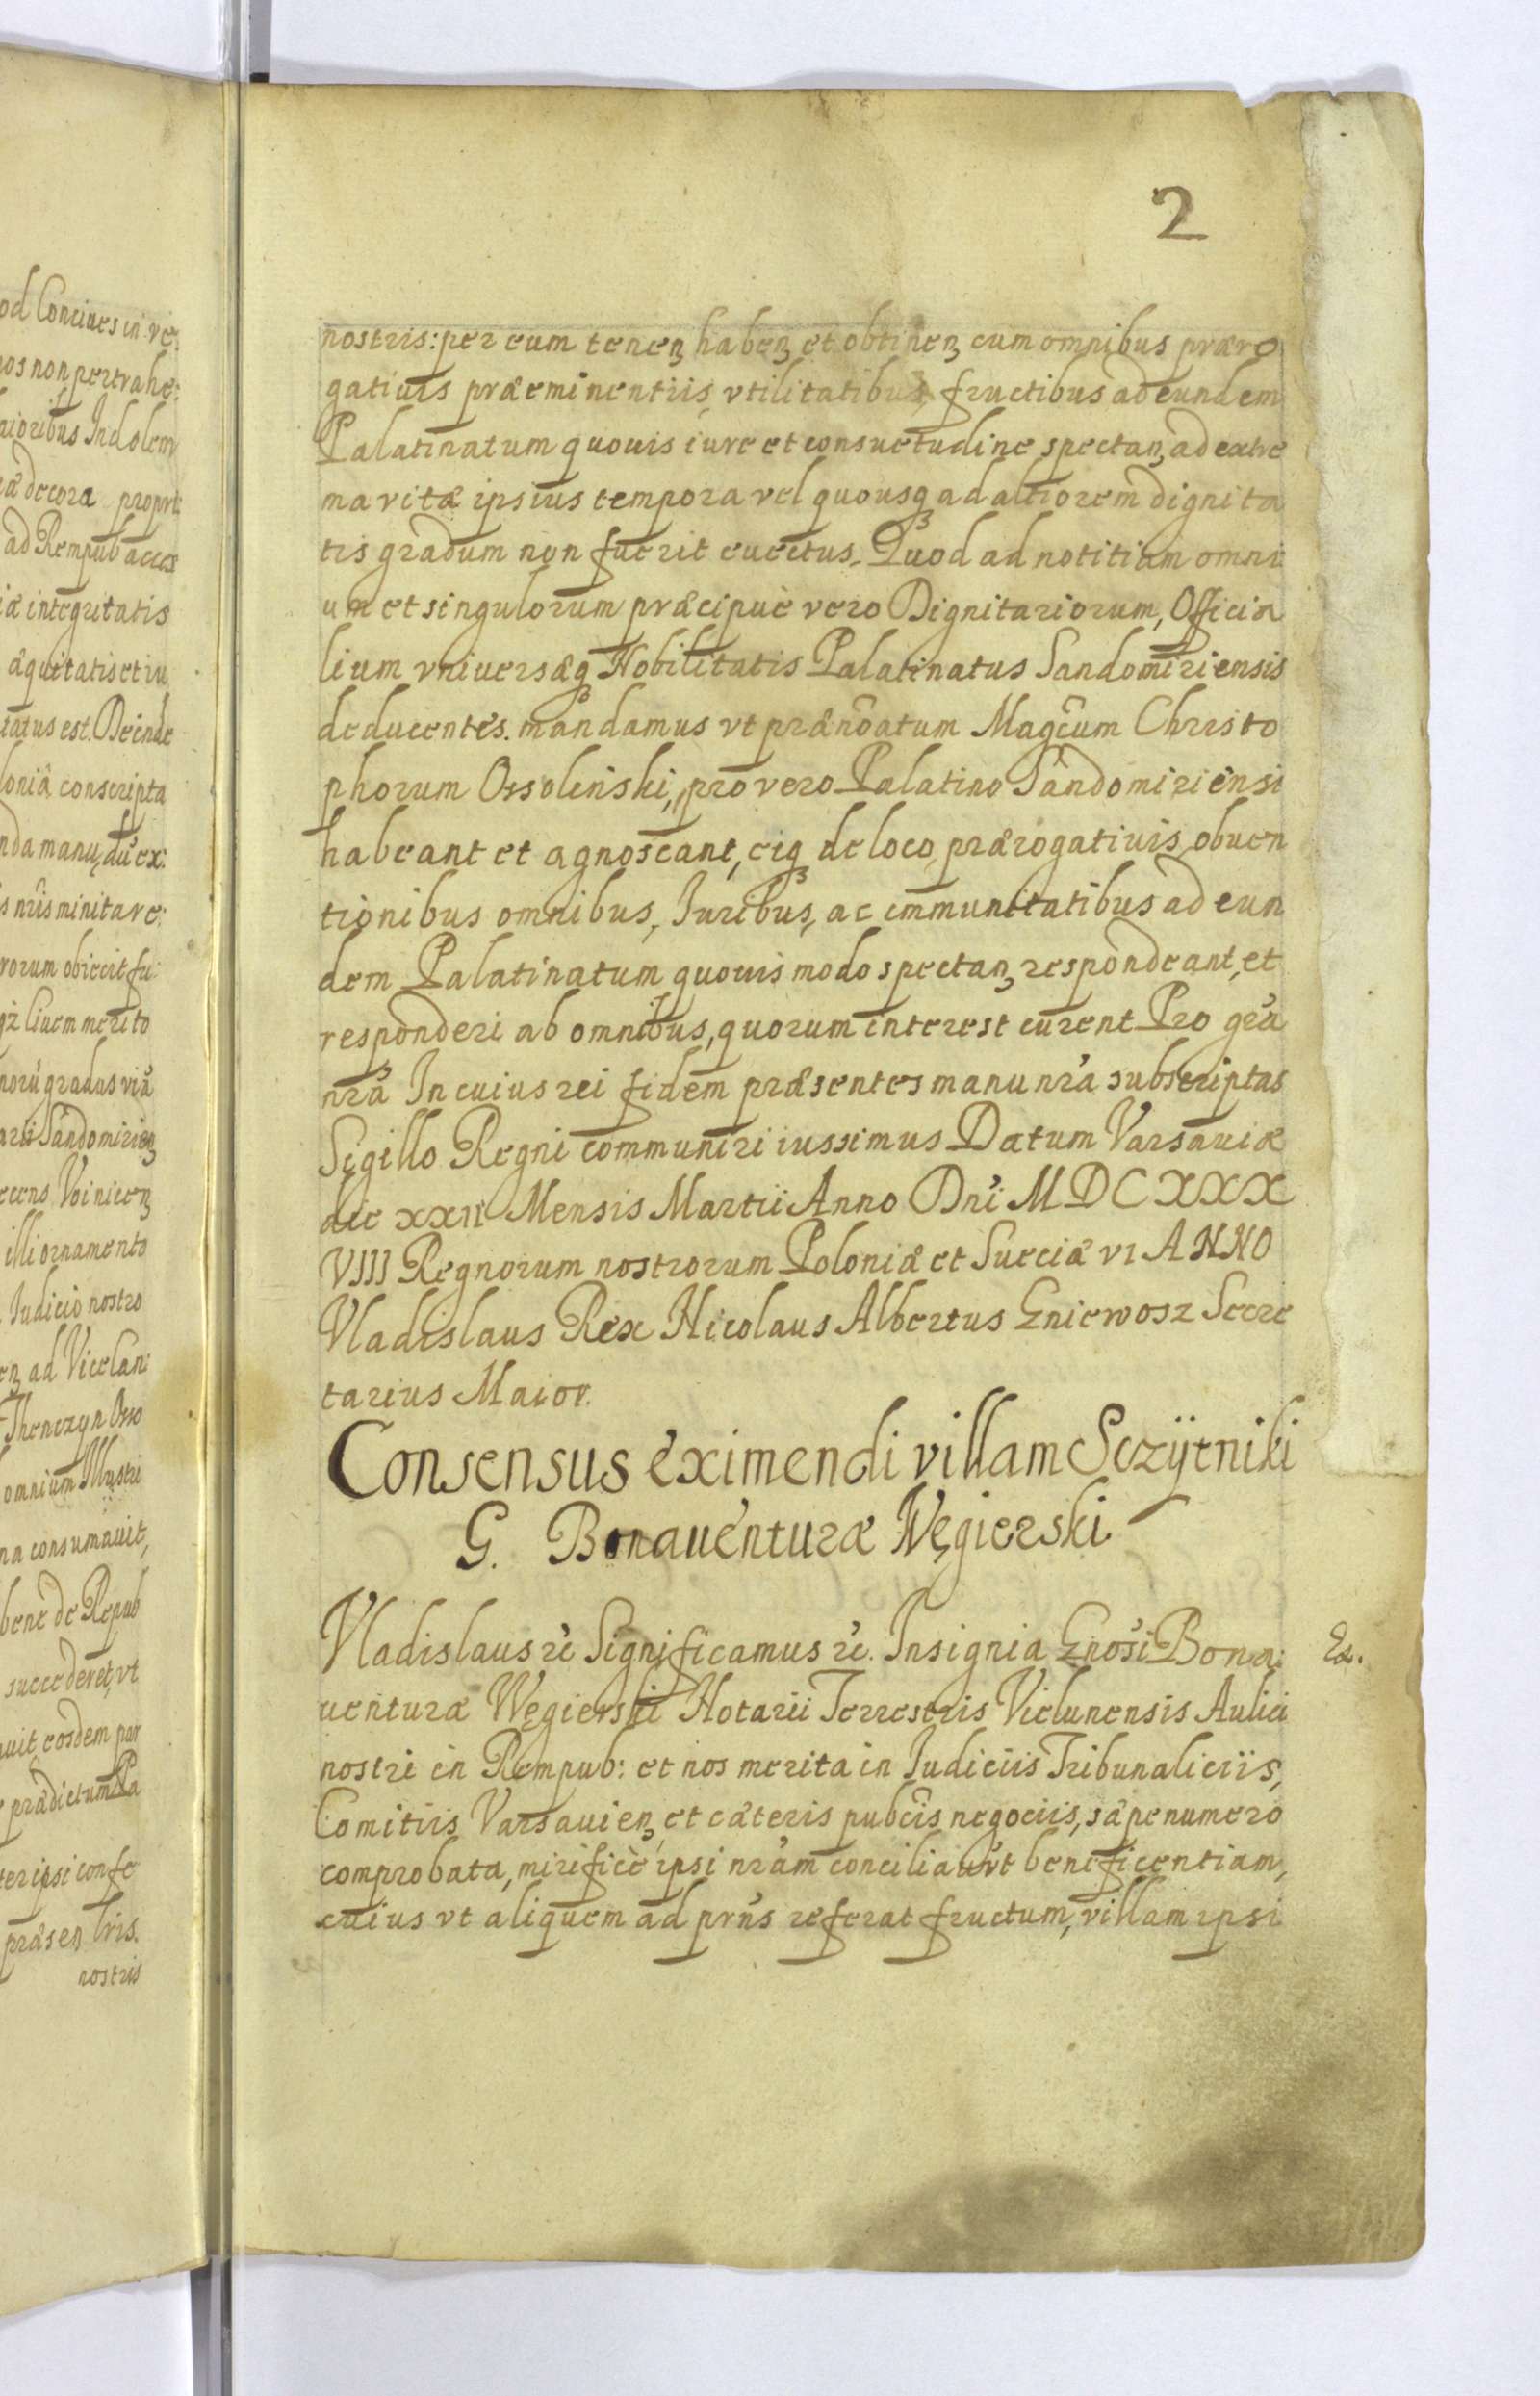 od Conciues in ve:
nos non pertrahe:
aioribus Indolem
decora propri
ad Rempub acces
iæ integritatis
æquitatis et iu
tatus est. Deinde
loniâ conscripta
nda manu, dũ ex:
s nr̃is minitare:
rorum obiecit fu:
Ciuem merito
norũ gradus viã
Sandomirien
Voinicen
illi ornamento
Iudicio nostro
ad Vicelan:
Thenczyn Osso
omnium Illustri
na consumauit,
bene de Repub
succederet, vt
uit eosdem par
prædictum Pa
ter ipsi confe
præsen lr̃is.
nostris
2
nostris: per eum tenen̨ haben̨ et obtinen̨ cum omnibus præro
gatiuis præeminentiis, vtilitatibus, fructibus ad eundem
Palatinatum quouis iure et consuetudine spectan̨ ad extre
ma vitæ ipsius tempora vel quousq̨ ad altiorem dignita
tis gradum non fuerit euectus. Quod ad notitiam omni
um et singulorum præcipuè vero Dignitariorum, Officia
lium vniuersæq̨ Nobilitatis Palatinatus Sandomiriensis
deducentes. mandamus vt prænõatum Magcũm Christo
phorum Ossolinski, pro vero Palatino Sandomiriensi
habeant et agnoscant, eiq̨ de loco, prærogatiuis, obuen
tionibus omnibus, Iuribus, ac immunitatibus ad eun
dem Palatinatum quouis modo spectan̨ respondeant, et
responderi ab omnibus, quorum interest curent Pro gr̃a
nr̃a In cuius rei fidem præsentes manu nr̃a subscriptas
Sigillo Regni communiri iussimus Datum Varsauiæ
die XXII Mensis Martii Anno Dñi M D C X X X
VIII Regnorum nostrorum Poloniæ et Sueciæ VI ANNO
Vladislaus Rex Nicolaus Albertus Gniewosz Secre
tarius Maior.
Consensus eximendi villam Sczÿtniki
G. Bonauenturæ Węgierski
Vladislaus ꝛc Significamus ꝛc. Insignia Gnosi Bona:
Ex.
uenturæ Węgierski Notarii Terrestris Vielunensis Aulici
nostri in Rempub: et nos merita in Iudiciis Tribunaliciis,
Comitiis Varsauien̨ et cæteris pubcis negociis, sæpenumero
comprobata, mirificè ipsi nr̃am conciliaur̃t beneficentiam,
cuius vt aliquem ad prñs referat fructum, villam ipsi